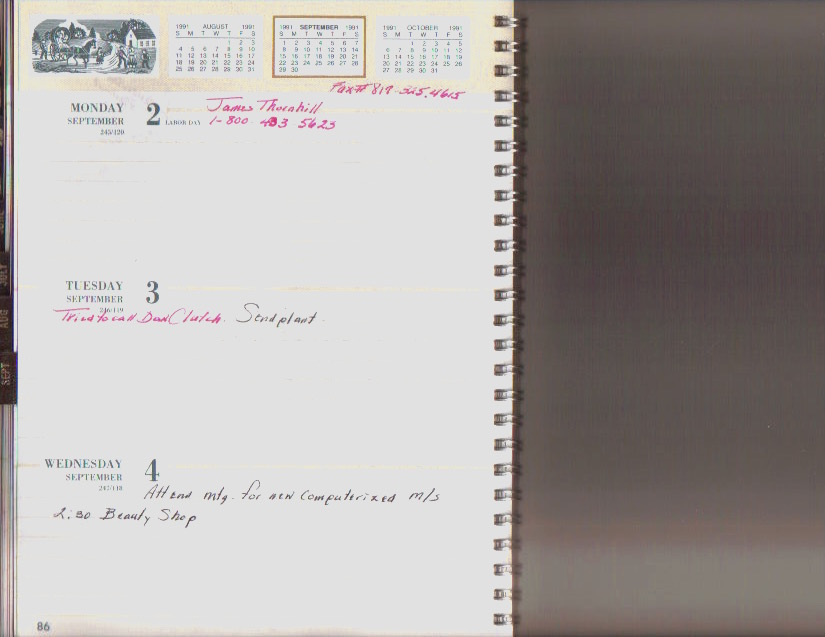 1991 AUGUST 1991
S M T W T F S
1 2 3
4 5 6 7 8 9 10
11 12 13 14 15 16 17
18 19 20 21 22 23 24
25 26 27 28 29 30 31
1991 SEPTEMBER 1991
S M T W T F S
1 2 3 4 5 6 7
8 9 10 11 12 13 14
15 16 17 18 19 20 21
22 23 24 25 26 27 28
29 30
1991 OCTOBER 1991
S M T W T F S
1 2 3 4 5
6 7 8 9 10 11 12
13 14 15 16 17 18 19
20 21 22 23 24 25 26
27 28 29 30 31
Fax# 817-325.4615
MONDAY 2 James Thornhill
SEPTEMBER LABOR DAY 1-800 433 5623
245/120
TUESDAY 3
SEPTEMBER
246/119
Tried to call Dan Clutch. Send plant
WEDNESDAY 4
SEPTEMBER
247/118
Attend mtg. for new computerized m/s
2:30 Beauty Shop
86
JULY
AUG
SEPT